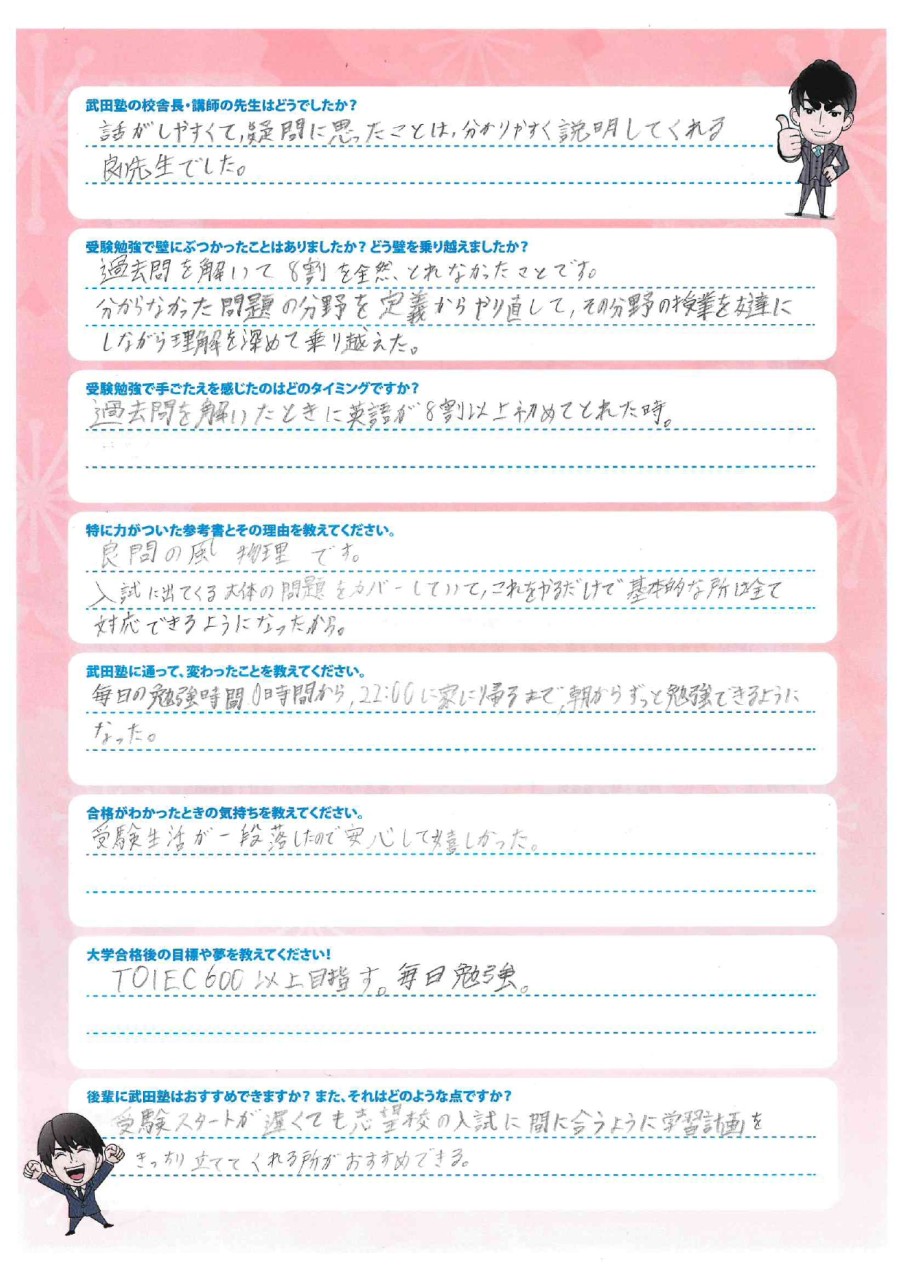 武田塾の校舎長・講師の先生はどうでしたか?
話がしやすくて,疑問に思ったことは,分かりやすく説明してくれる
良い先生でした。
受験勉強で壁にぶつかったことはありましたか? どう壁を乗り越えましたか?
過去問を解いて8割を全然、とれなかったことです。
分からなかった問題の分野を定義からやり直して,その分野の授業を友達に
しながら理解を深めて乗り越えた。
受験勉強で手ごたえを感じたのはどのタイミングですか?
過去問を解いたときに英語が8割以上初めてとれた時。
特に力がついた参考書とその理由を教えてください。
良問の風 物理 です。
入試に出てくる大体の問題をカバーしていて,これをやるだけで基本的な所は全て
対応できるようになったから。
武田塾に通って、変わったことを教えてください。
毎日の勉強時間0時間から,22:00に家に帰るまで,朝からずっと勉強できるように
なった。
合格がわかったときの気持ちを教えてください。
受験生活が一段落したので安心して嬉しかった。
大学合格後の目標や夢を教えてください!
TOIEC600以上目指す。毎日勉強。
後輩に武田塾はおすすめできますか? また、それはどのような点ですか?
受験スタートが遅くても志望校の入試に間に合うように学習計画を
きっちり立ててくれる所がおすすめできる。